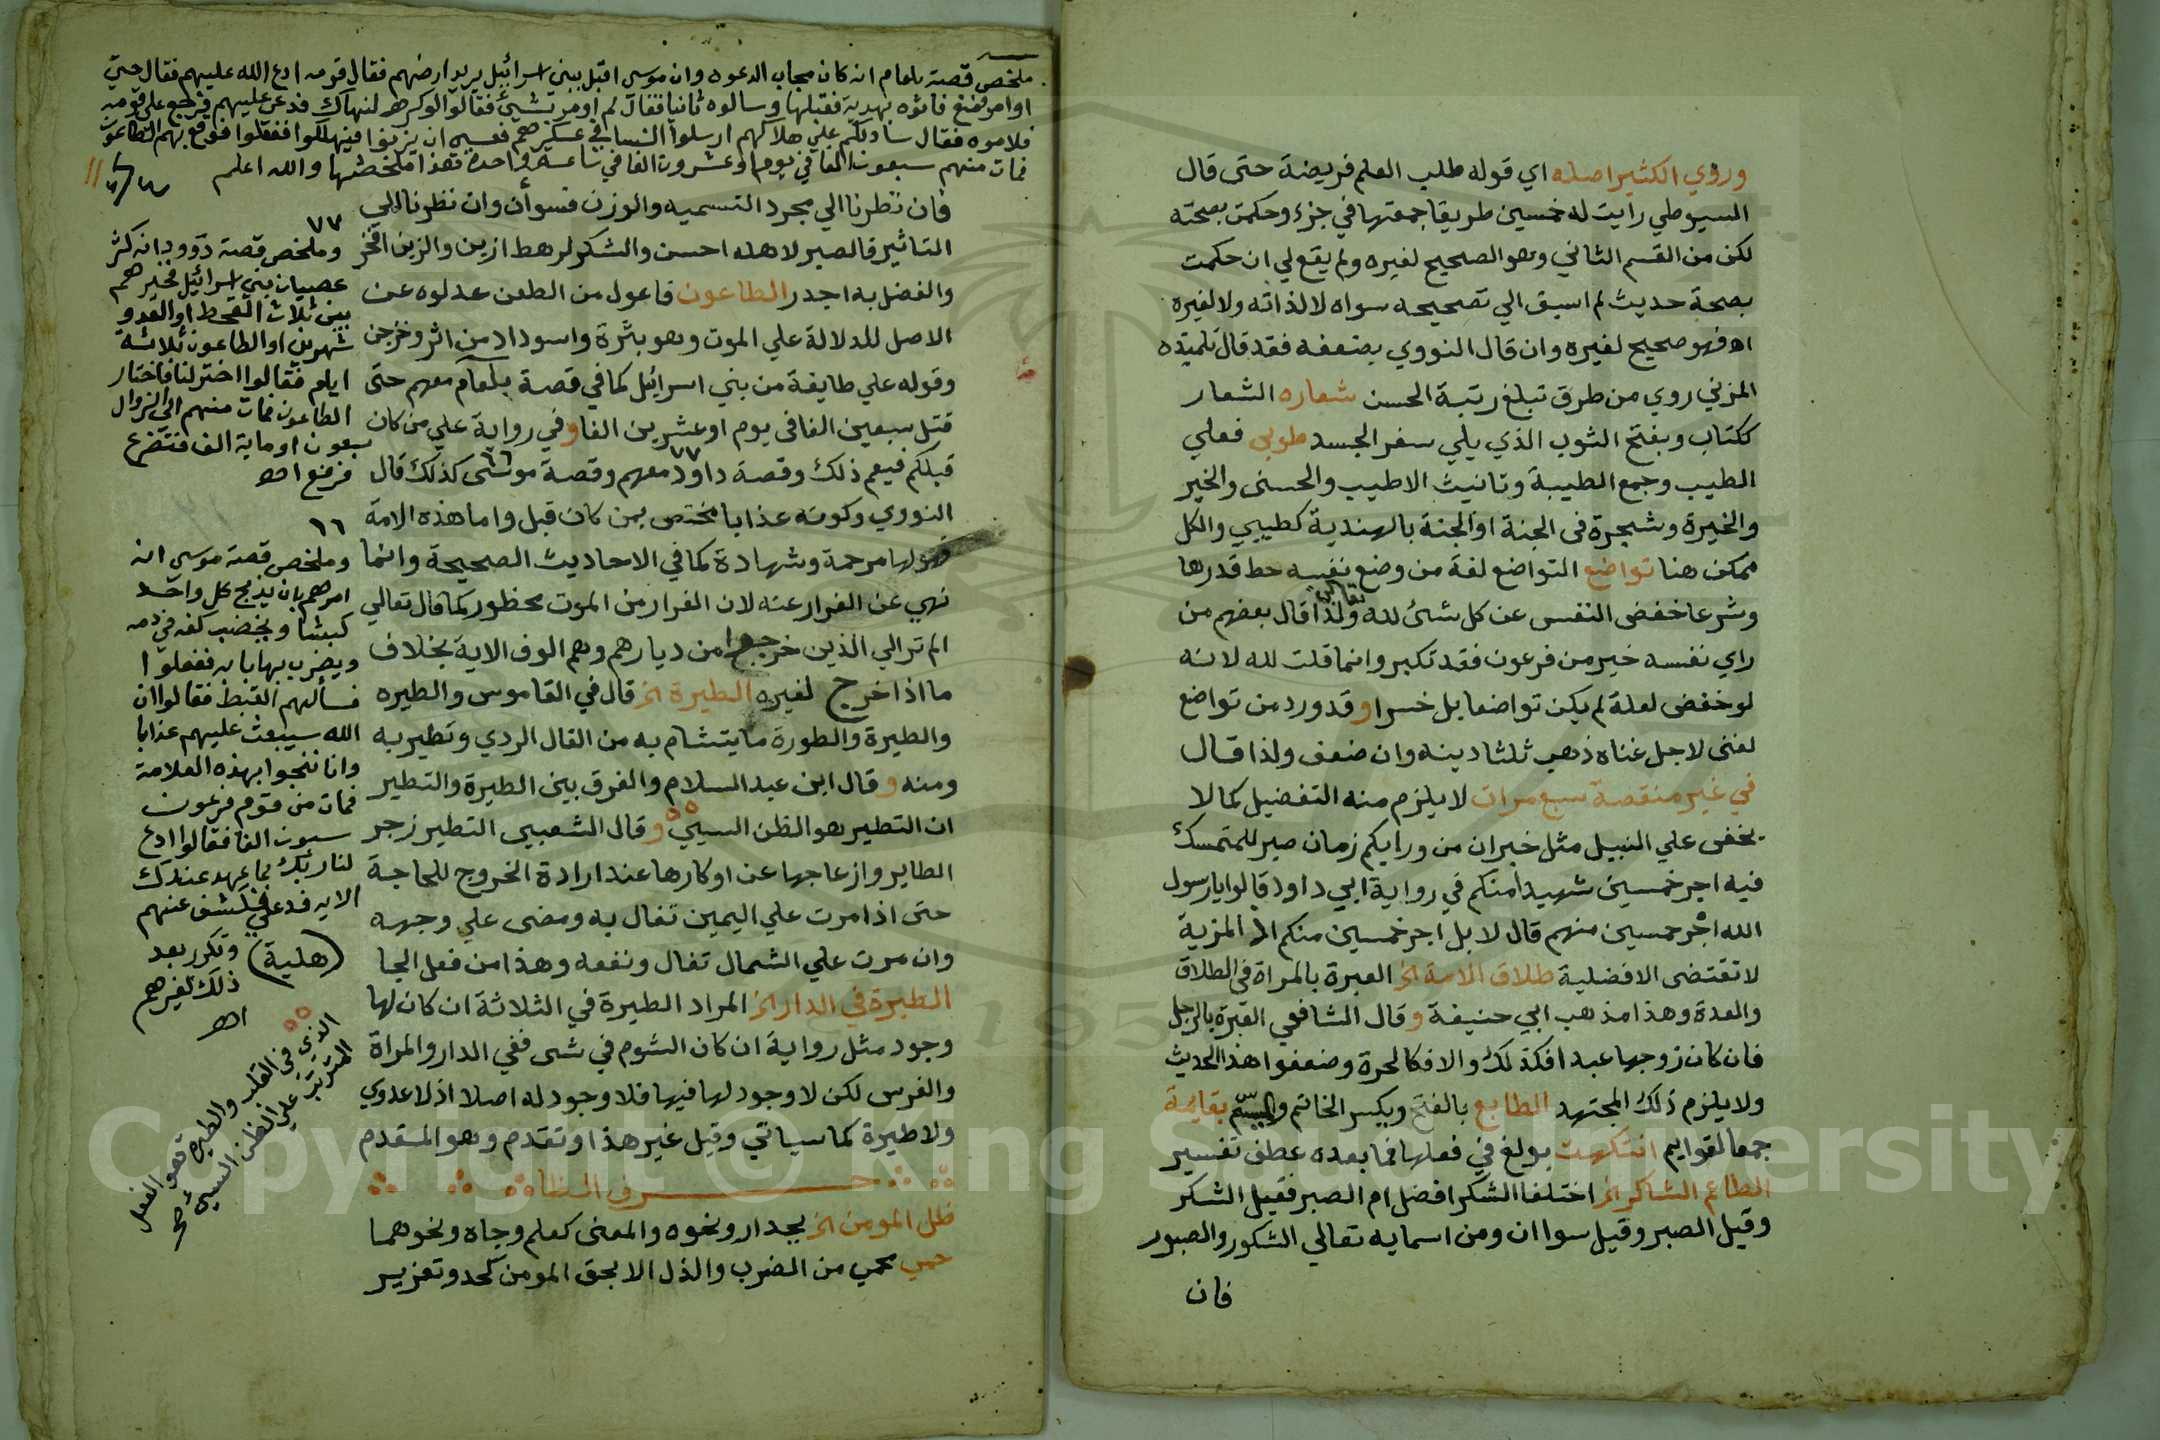 وروي الكثير اصله اي قوله طلب العلم فريضة حتى قال
السيوطي رايت له خمسين طريقا جمعتها في جزء وحكمت بصحته
لكن من القسم الثاني وهو الصحيح لغيره ولم يقع لي ان حكمت
بصحة حديث لم اسبق الي تصحيحه سواه لا لذاته ولا لغيره
اه فهو صحيح لغيره وان قال النووي بضعفه فقد قال تلميذه
المزني روي من طرق تبلغ رتبة الحسن شعاره الشعار
ككتاب وبفتح الثوب الذي يلي سفر الجسد طوبي فعلي
الطيب وجمع الطيبة وتانيث الاطيب والحسنى والخير
والخيرة وشجرة في الجنة او الجنة بالهندية كطيبي والكل
ممكن هنا تواضع التواضع لغة من وضع نفسه حط قدرها
وشرعا خفض النفس عن كل شئ لله تعالى ولذا قال بعضهم من
راي نفسه خير من فرعون فقد تكبر وانما قلت لله لانه
لو خفض لعلة لم يكن تواضعا بل خسرا وقد ورد من تواضع
لغني لاجل غناه ذهب ثلثا دينه وان ضعف ولذا قال
في غير منقصة سبع مرات لا يلزم منه التفضيل كما لا
يخفى علي النبيل مثل خبر ان من ورايكم زمان صبر للمتمسك
فيه اجر خمسين شهيدا منكم في رواية ابي داود قالوا يا رسول
الله اجر خمسين منهم قال لا بل اجر خمسين منكم اذ المزية
لا تقتضى الافضلية طلاق الامة الخ العبرة بالمراة في الطلاق
والعدة وهذا مذهب ابي حنيفة وقال الشافعي العبرة بالرجل
فان كان زوجها عبدا فكذلك والا فكالحرة وضعفوا هذا الحديث
ولا يلزم ذلك المجتهد الطابع بالفتح وبكسر الخاتم بقايمة
جمعا لقوايم انتكهت بولغ في فعلها فما بعده عطف تفسير
الطاعم الشاكر الخ اختلفا الشكر افضل ام الصبر فقيل الشكر
وقيل الصبر وقيل سواان ومن اسمايه تعالي الشكور والصبور
فان
ملخص قصة بلعام انه كان مجاب الدعوه وان موسي اقبل ببني اسرائيل يريد ارضهم فقال قومه ادع الله عليهم فقال حتي
اوامر فمنع فاتوه بهدية فقبلها وسالوه ثانيا فقال لم اومر بشيئ فقالوا لو كره لنهاك فدعي عليهم فرجع علي قومه
فلاموه فقال سادلكم علي هلاكهم ارسلوا النسا في عسكرهم فعسي ان يزنوا فيهلكوا ففعلوا فوقع بهم الطاعون
فمات منهم سبعون الفا في يوم او عشرون الفا في ساعة واحدة فهذا ملخصها والله اعلم
فان نظرنا الي مجرد التسميه والوزن فسوأن وان نظرنا الي
التاثير فالصبر لاهله احسن والشكر لرهط ازين والزين افخر
والفضل به اجدر الطاعون فاعول من الطعن عدلوه عن
الاصل للدلالة علي الموت وهو بثرة واسوداد من اثر وخزجن
وقوله علي طايفة من بني اسرائيل كما في قصة بلعام معهم حتى
قتل سبعين الفا في يوم او عشرين الفا وفي رواية علي من كان
قبلكم فيعم ذلك وقصة داود ٧٧ معهم وقصة موسى ٦٦ كذلك قال
النووي وكونه عذابا مختص بمن كان قبل واما هذه الامة
فهو لها مرحمة وشهادة كما في الاحاديث الصحيحة وانما
نهي عن الفرار عنه لان الفرار من الموت محظور كما قال تعالي
الم تر الي الذين خرجوا من ديارهم وهم الوف الاية بخلاف
ما اذا خرج لغيره الطيرة الخ قال في القاموس والطيره
والطيرة والطورة ما يتشام به من الفال الردي وتطير به
ومنه وقال ابن عبد السلام والفرق بين الطيرة والتطير
ان التطير هو الظن السيئ ٥٥ وقال الشعبي التطير زجر
الطاير وازعاجها عن اوكارها عند ارادة الخروج للحاجة
حتى اذا مرت علي اليمين تفال به ومضى علي وجهه
وان مرت علي الشمال تفال ونفعه وهذا من فعل الجا
الطيرة في الدار الخ المراد الطيرة في الثلاثة ان كان لها
وجود مثل رواية ان كان الشوم في شى ففي الدار والمراة
والفرس لكن لا وجود لها فيها فلا وجود له اصلا اذ لا عدوي
ولا طيرة كما سياتي وقيل غير هذا وتقدم وهو المستقدم
حرف الظا
ظل المومن الخ بجدار ونحوه والمعنى كعلم وجاه ونحوهما
حمي محمي من الضرب والذل الا بحق المومن كحد وتعزير
٧٧
وملخص قصة دوود انه كثر
عصيان بني اسرائيل فخيرهم
بين ثلاث القحط او العدو
شهرين او الطاعون ثلاثة
ايام فقالوا اختر لنا فاختار
الطاعون فمات منهم الي الزوال
سبعون او ماية الف فتضرع
فرفع اه
٦٦
وملخص قصة موسي انه
امرهم بان يذبح كل واحد
كبشا ويخضب كفه في دمه
ويضرب بها بابه ففعلوا
فسألهم القبط فقالوا ان
الله سيبعث عليهم عذابا
وانا ننجوا بهذه العلامة
فمات من قوم فرعون
سبعون الفا فقالوا ادع
لنا ربك بما عهد عندك
الايه فدعي فكشف عنهم
(هلية) وتكرر بعد
ذلك لغيرهم
اه
٥٥
الذي في القلب والطيره هو الفعل
المترتب علي الظن السيئ صح